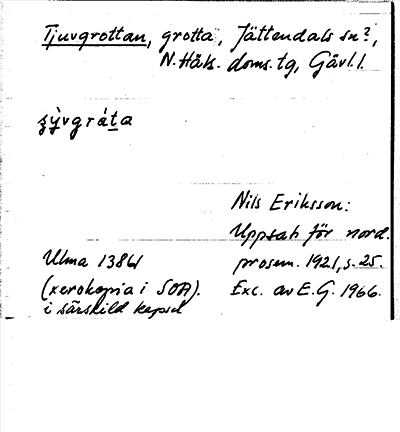 Tjuvgrottan, grotta, Jättendals sn?,
N. Häls. doms. tg, Gävl. l.
ʒỳvgráta
Nils Eriksson:
Uppsats för nord.
Ulma 13861 prosem. 1921, s. 25.
(xerokopia i SOA). Exc. av E.G. 1966.
i särskild kapsel